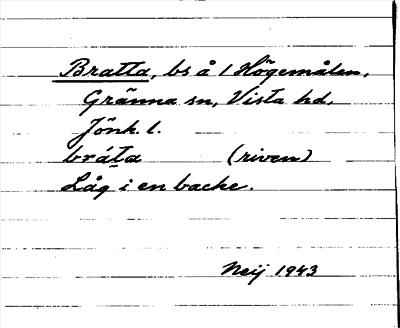 Bratta, bs å 1 Högemålen,
Gränna sn, Vista hd,
Jönk. l.
bráta (riven)
Låg i en backe.
Neij 1943